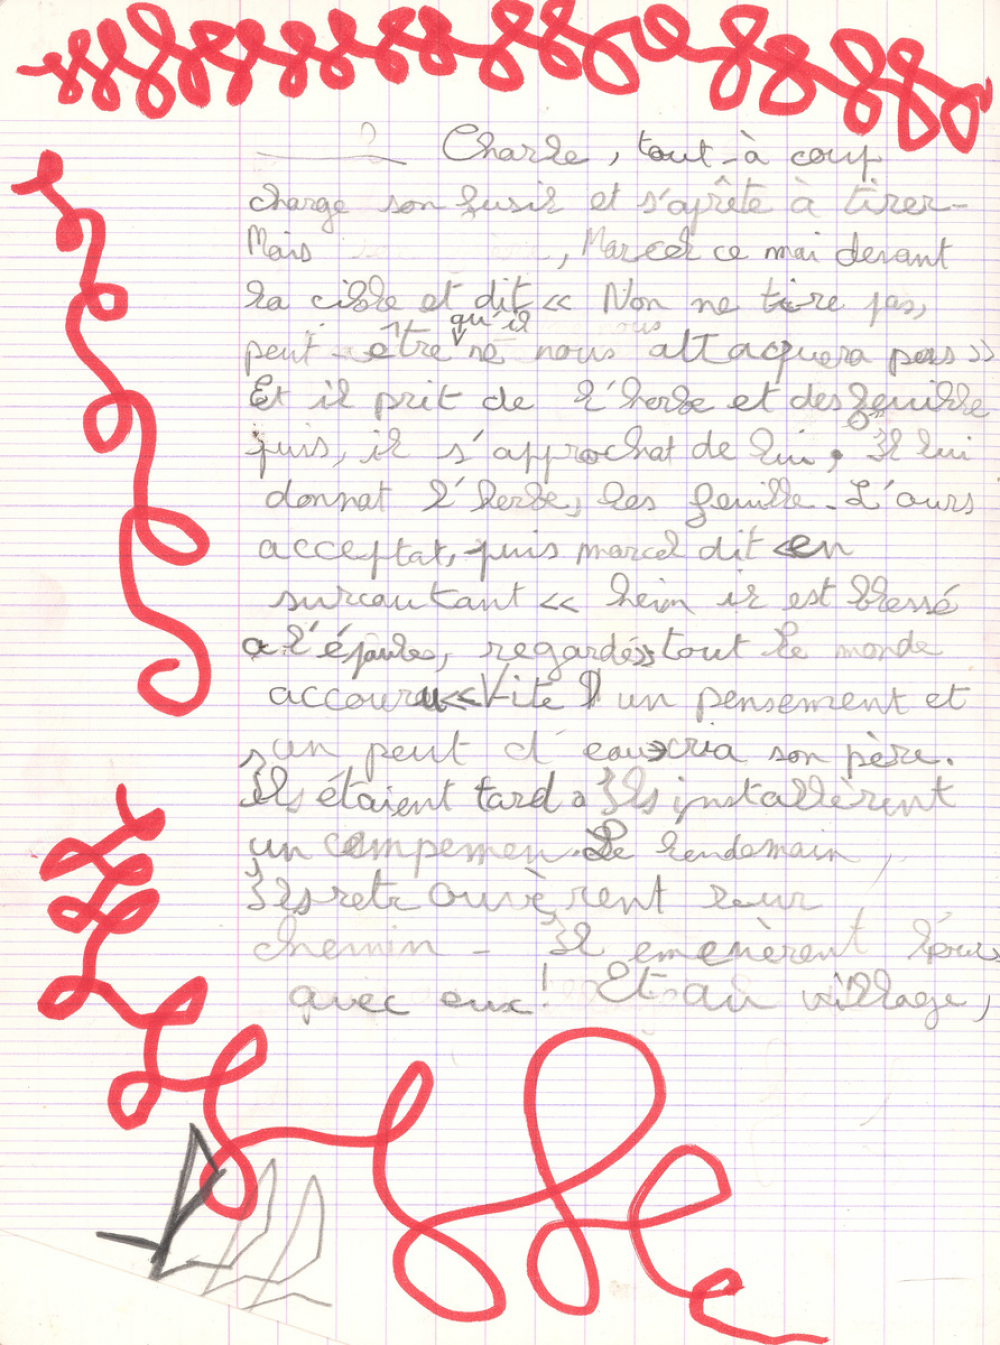 Charle, tout-à coup
charge son fusil et s'aprête à tirer-
Mais , Marcel ce mai devant
la cible et dit « Non ne tire pas,
peut-être qu'il ne nous attaquera pas »
Et il prit de l'herbe et des feuille
puis, il s'approchat de lui, Il lui
donnat l'herbe, les feuille. L'ours
acceptat, puis marcel dit en
surcautant « heim il est blessé
a l'épaule, regardés» tout le monde
accouru «Vite un pensement et
un peut d'eau» cria son père.
Ils étaient tard. Ils installèrent
un campemen. Le lendemain,
Ils retrouvèrent leur
chemin - Il emenèrent l'ours
avec eux! Et au village,